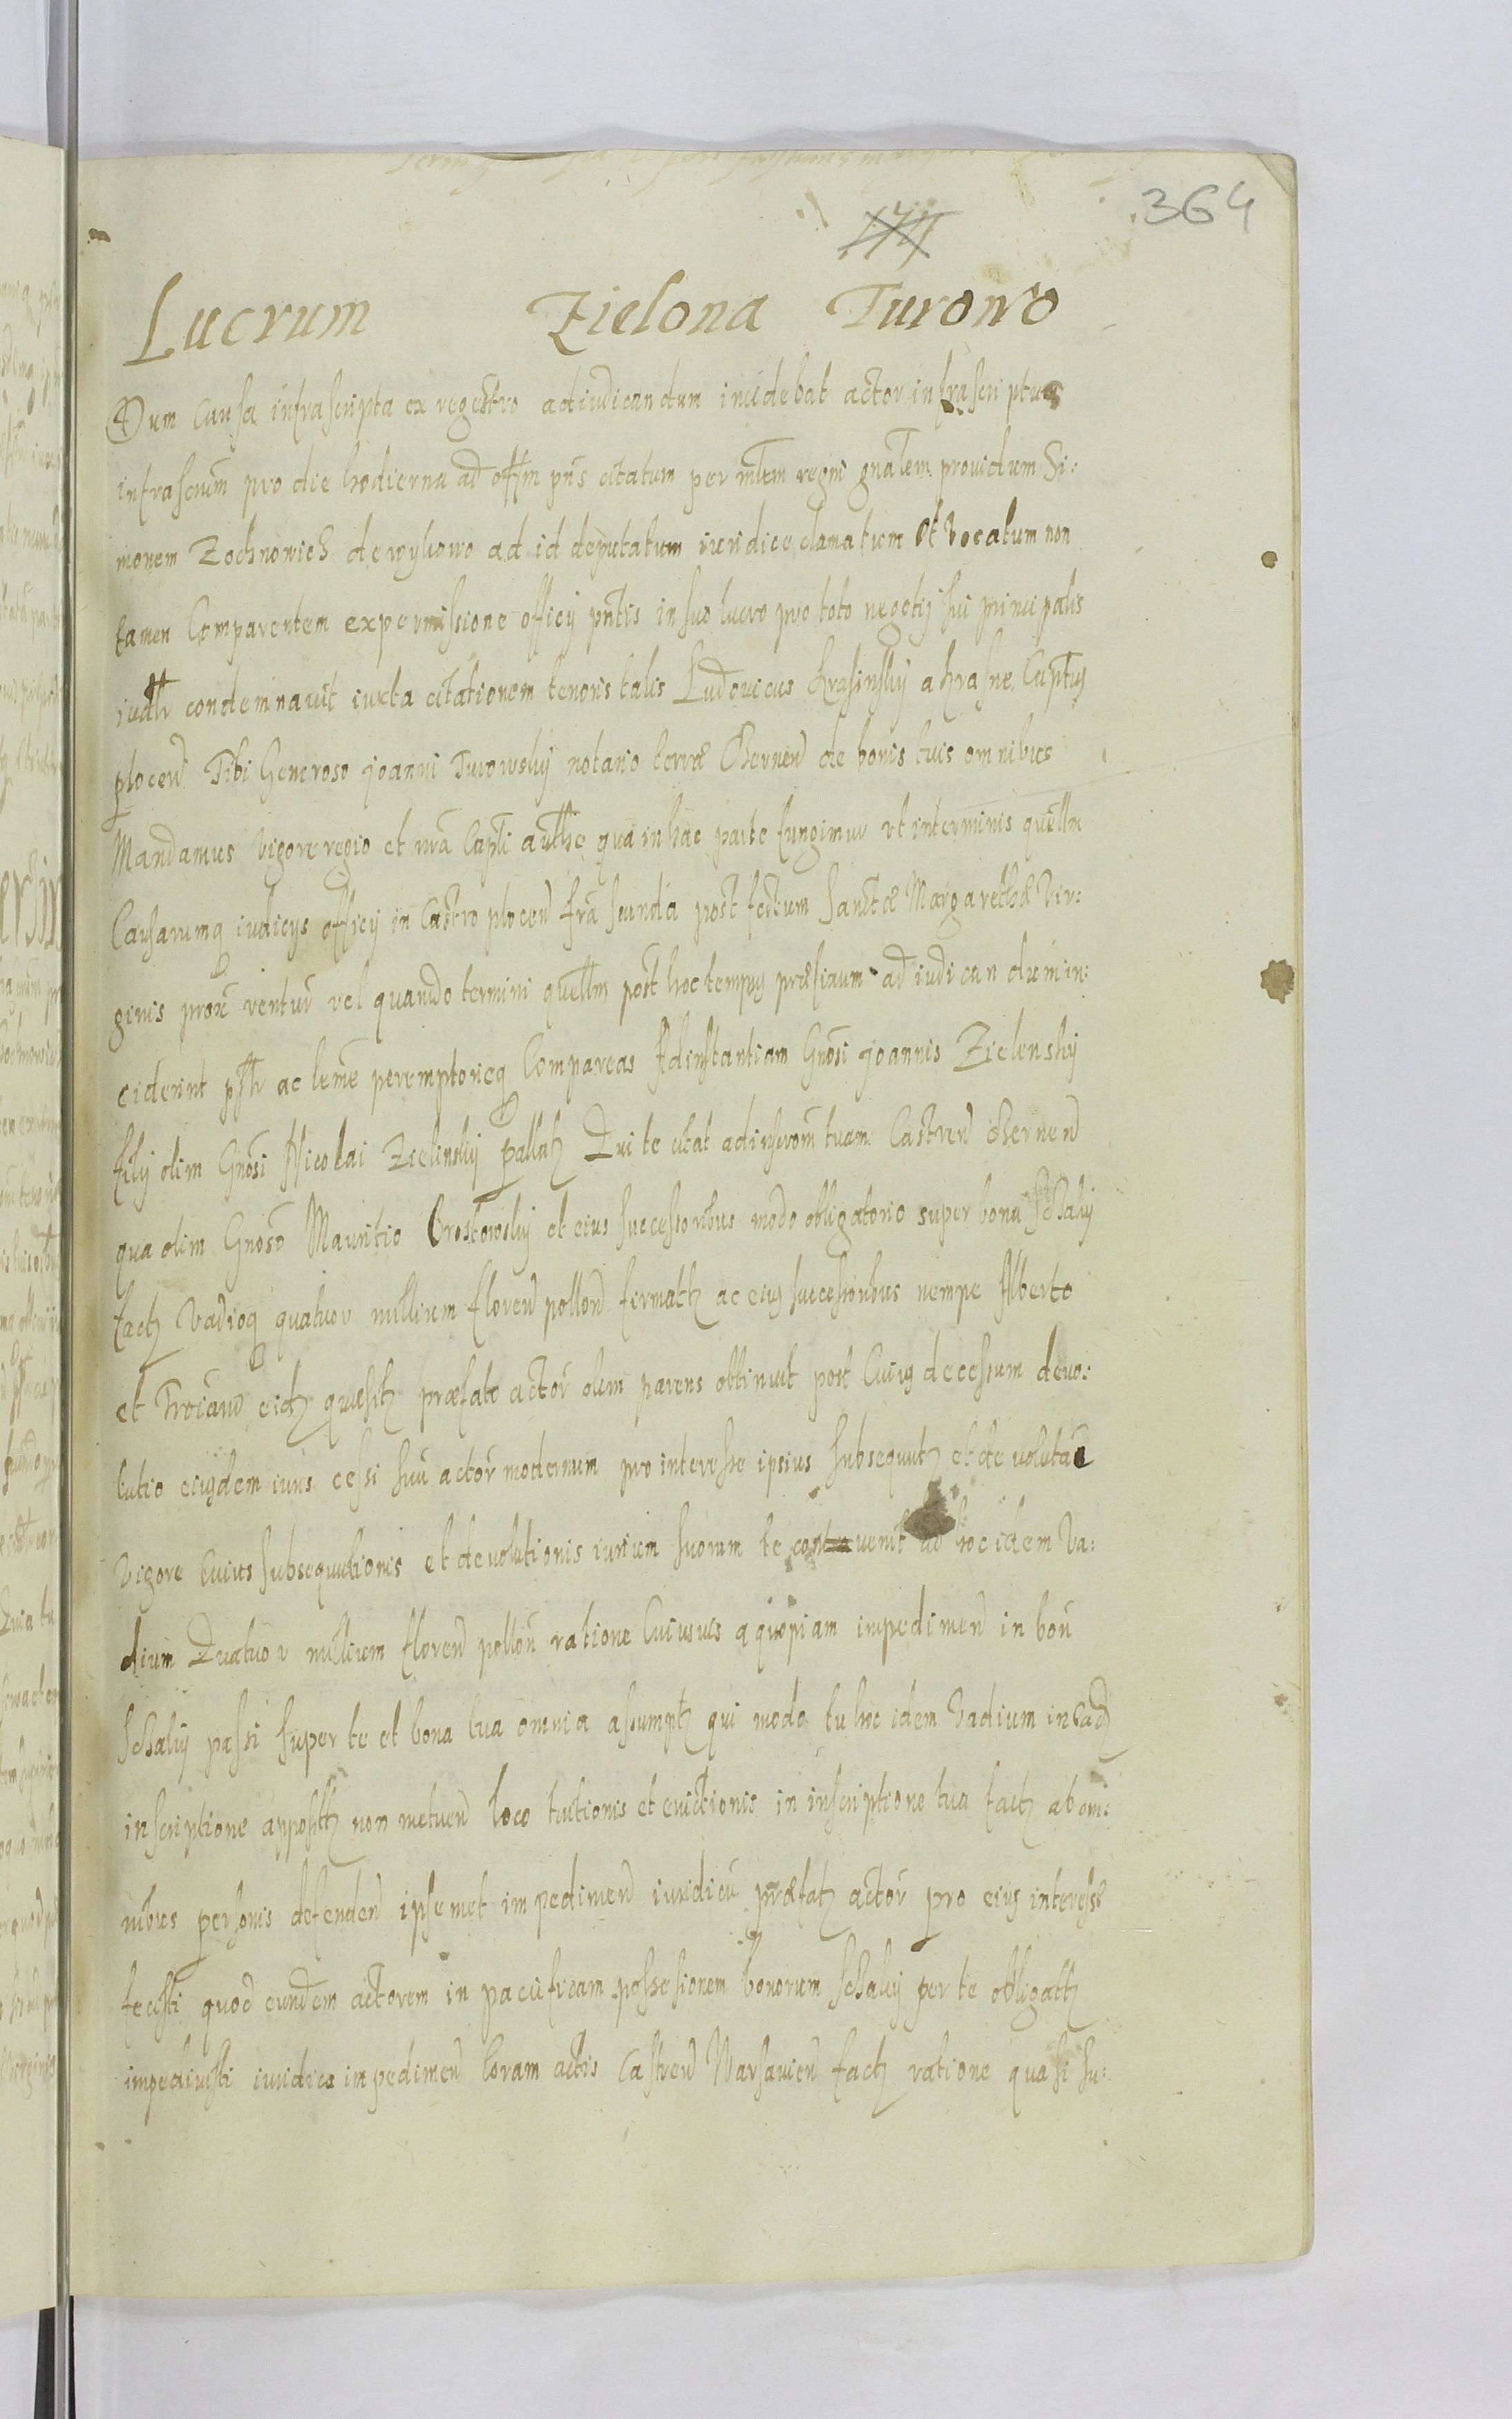 364
Lucrum Zielona Turowo
Dum Causa infrascripta ex regestro adiudicandum incidebat actor infrascriptus
infrascrūm pro die hodierna ad offm pns citatum per mltem regni gnalem prouidum Si:
monem Zochnowich de wylowo ad id deputatum iuridice clamatum et vocatum non
tamen Comparentem ex permissione officij pntis in suo lucro pro toto negotij sui principalis
iudtr condemnauit iuxta citationem tenoris talis Ludouicus Krasinskij a Krasne Captus
plocen Tibi Generoso joanni Turowskij notario terræ Cernen de bonis tuis omnibus
Mandamus vigore regio et nra Captli authe qua in hac parte fungimur vt in terminis quellm
Causarumq iudicijs officij in Castro plocen fra scunda post festum Sanctæ Margarethæ Vir:
ginis proxe ventur vel quando termini quellm post hoc tempus præfixum ad iudicandum in:
ciderint psltr ac leme peremptorieq Compareas Ad instantiam Gnosi joannis Zielenskij
filij olim Gnosi Nicolai Zielinskij Qui te citat ad inscrom tuam Castren Cernen
qua olim Gnoso Mauritio et eius successoribus modo obligatorio super bona
fact Vadioq quatuor millium floren pollon firmatt ac eius successoribus nempe Alberto
et præfato actor olim parens obtinuit post Cuius decessum deuo:
lutio eiusdem iuris cessi suu actor modernum pro interesse ipsius subsequut et deuoluta
Vigore Cuius subsequutionis et deuolutionis iurium suorum te conuenit ad hoc idem Va:
dium Quatuor millium floren pollon ratione Cuiusuis a quopiam impedimen in bon
passi super te et bona tua omnia assumpt qui modo tu hoc idem Vadium in ead
inscriptione appositt non metuen loco tuitionis et euictionis in inscriptione tua fact ab om:
nibus personis defenden ipsemet impedimen iuridicu præfat actor pro eius interesse
fecisti quod eundem actorem in pacificam possesionem bonorum per te obligatt
impediuisti iuridice impedimen Coram actis Castren Varsauien fact ratione quasi su: